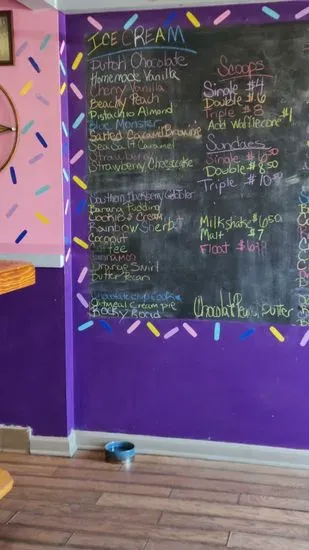 ICE CREAM
Dutch Chocolate
Homemade Vanilla
Cherry Vanilla
Beachy Peach
Pistachio Almond
Blue Monster
Salted Caramel Brownie
Sea Salt Caramel
Strawberry
Strawberry Cheesecake
Southern Blackberry Cobbler
Banana Pudding
Cookies & Cream
Rainbow Sherbet
Coconut
Coffee
Cinnamon
Orange Swirl
Butter Pecan
Chocolate Chip Cookie
Oatmeal Cream pie
Rocky Road
Scoops
Single $4
Double $6
Triple $8
Add Waffle cone $1
Sundaes
Single $6.50
Double $8.50
Triple $10.50
Milkshake $6.50
Malt $7
Float $6
Chocolate Peanut Butter